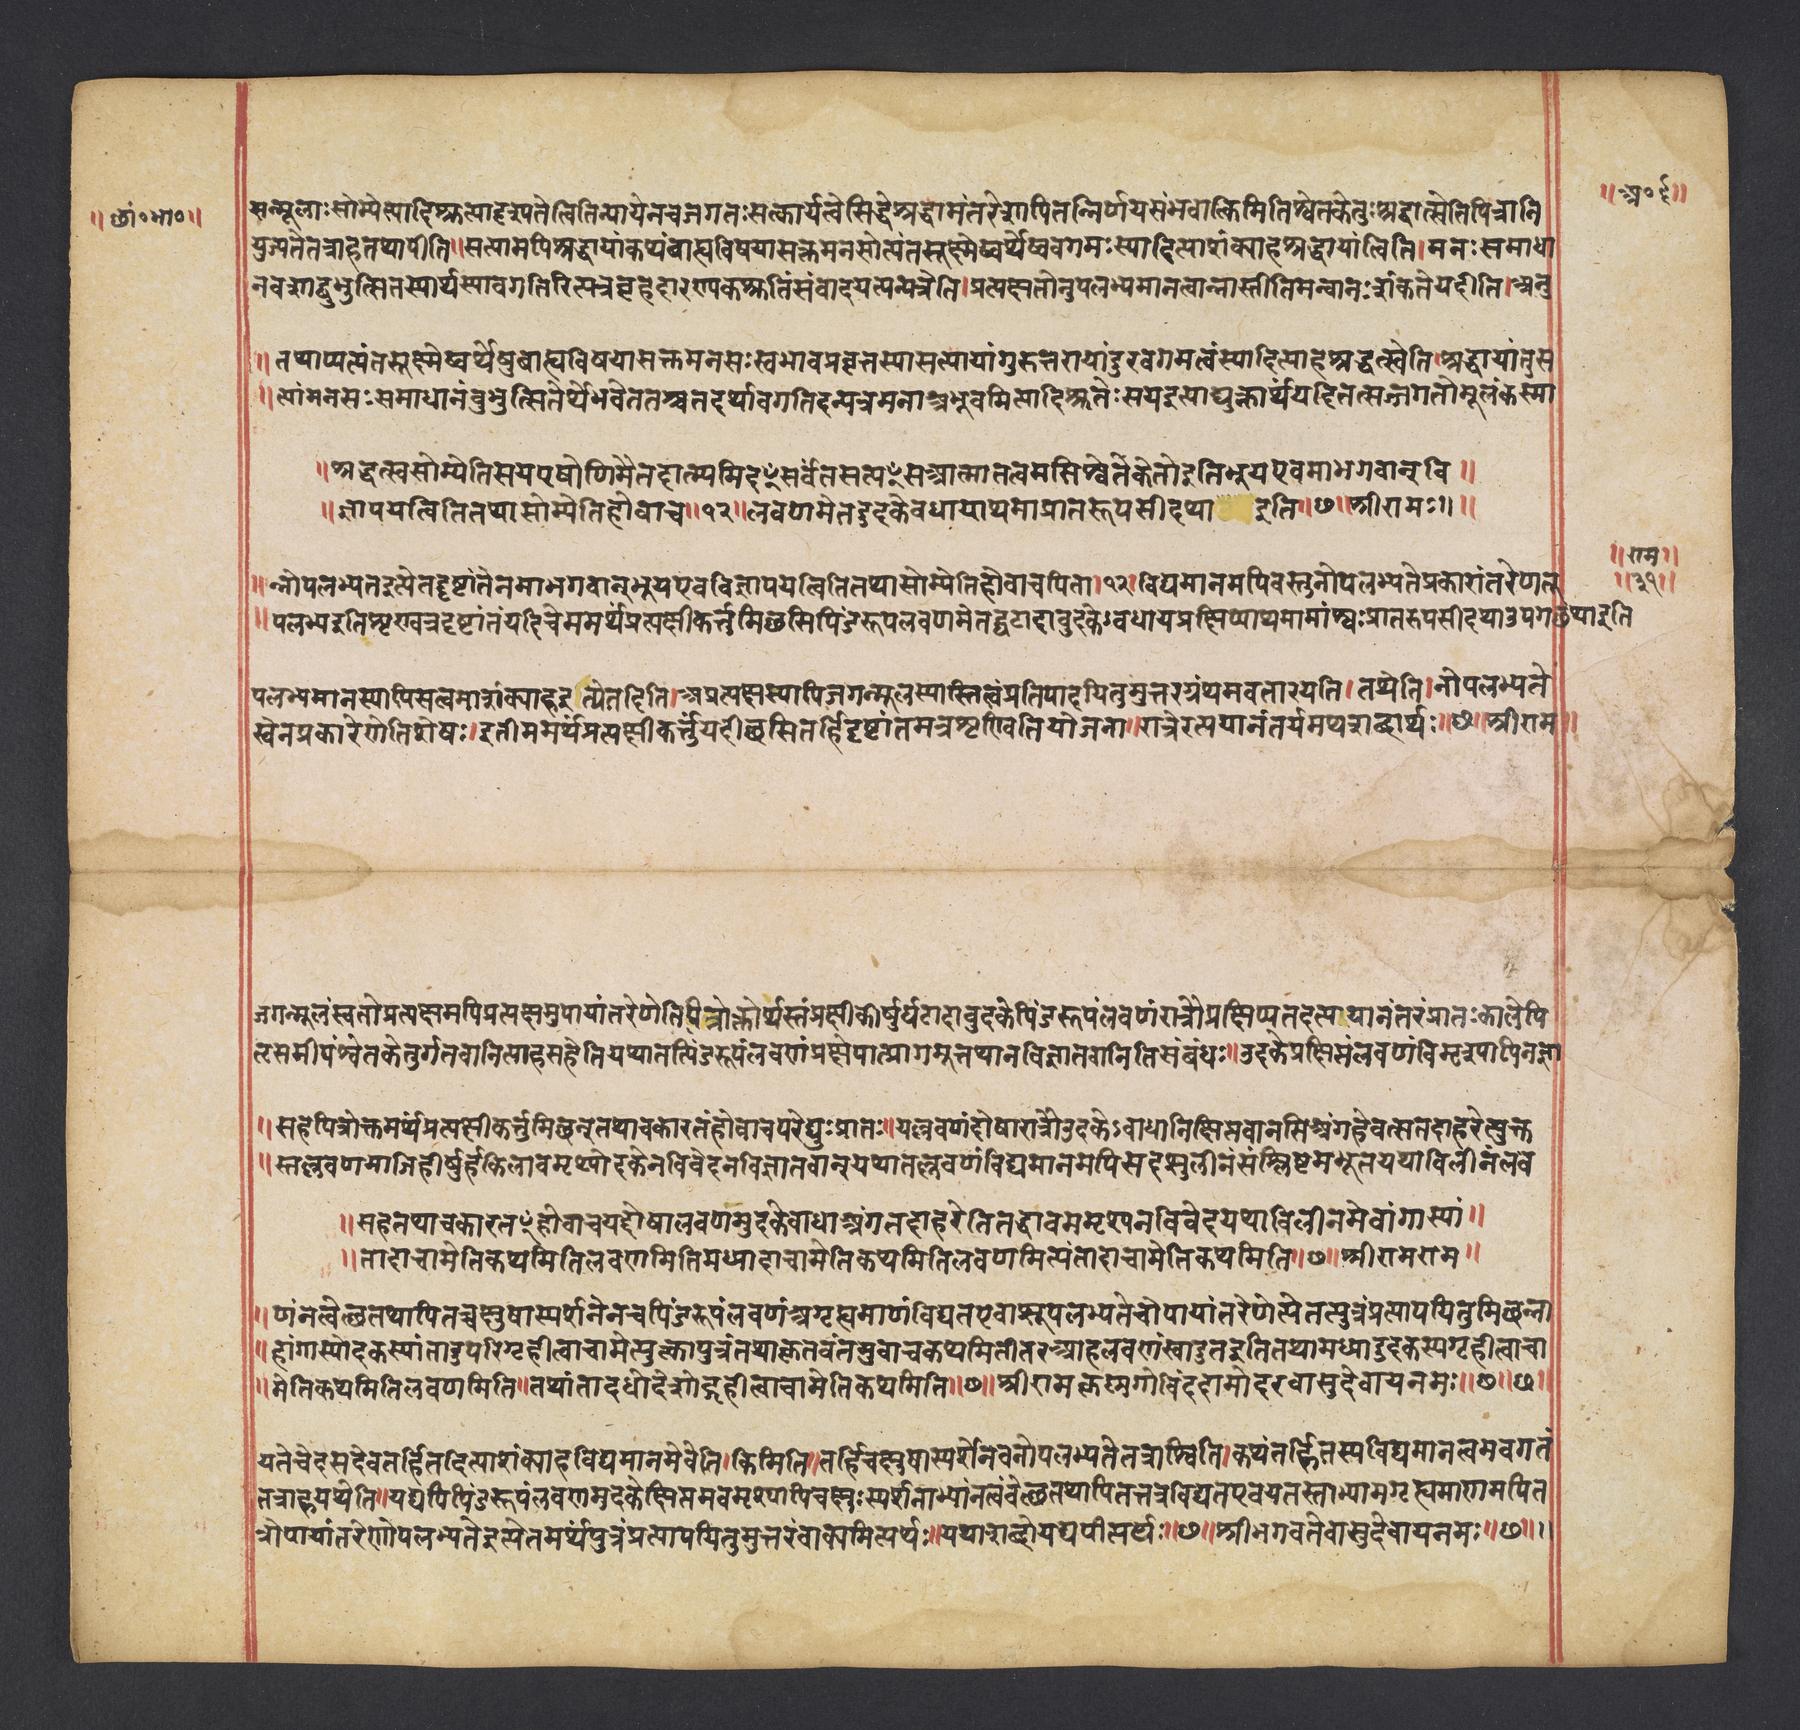 ॥छां॰भा॰॥
॥अ॰६॥
सन्मूलाः सोम्येत्यादिश्रुत्यादृश्यते त्वितिन्यायेनचजगतः सत्कार्यत्वेसिद्धेश्रद्धामंतरेणापितन्निर्णयसंभवात्किमितिश्वेतकेतुः श्रद्धात्सेतिपित्रानि
युज्यतेतत्राहतथापीति॥सत्यामपिश्रद्धायांकथंबाह्यविषयासक्तमनसोत्यंतसूक्ष्मेष्वर्थेष्ववगमः स्यादित्याशंक्याहश्रद्धायांत्विति।मनः समाधा
नवशाद्बुभुत्सितस्यार्थस्यावगतिरित्यत्रबृहदारण्यकश्रुतिंसंवादयत्यन्यत्रेति।प्रत्यक्षतोनुपलभ्यमानत्वान्नास्तीतिमन्वानः शंकतेयदीति।अनु
॥तथाप्यत्यंतसूक्ष्मेष्वर्थेषुबाह्यविषयासक्तमनसः स्वभावप्रवृत्तस्यासत्यायांगुरुतरायांदुरवगमत्वंस्यादित्याहश्रद्धत्स्वेति।श्रद्धायांतुस
॥त्यांमनसः समाधानंबुभुत्सितेर्थेभवेत्ततश्चतदर्थावगतिरन्यत्रमनाअभूवमित्यादिश्रुतेः सयइत्याद्युक्तार्थंयदितत्सज्जगतोमूलंकस्मा
॥श्रद्धत्स्वसोम्येतिसयएषोणिमैतदात्म्यमिदꣳसर्वंतत्सत्यꣳसआत्मातत्वमसिश्वेतकेतोइतिभूयएवमाभगवान्वि॥
॥ज्ञापयत्वितितथासोम्येतिहोवाच॥१२॥लवणमेतदुदकेवधायाथमाप्रातरुपसीदथा इति॥छ॥श्रीरामः॥॥
॥राम॥
॥३१॥
॥न्नोपलभ्यतइत्येतद्दृष्टांतेनमाभगवान्भूयएवविज्ञापयत्वितितथासोम्येतिहोवाचपिता।१२।विद्यमानमपिवस्तुनोपलभ्यतेप्रकारांतरेणतू
॥पलभ्यइतिशृण्वत्रदृष्टांतंयदिचेममर्थंप्रत्यक्षीकर्त्तुमिछसिपिंडरूपलवणमेतद्घटादावुदकेऽवधायप्रक्षिप्याथमामांश्वः प्रातरुपसीदथाउपगछेथाइति
पलभ्यमानस्यापिसत्वमाशंक्याहइत्येतदिति।अप्रत्यक्षस्यापिजगन्मूलस्यास्तित्वंप्रतिपादयितुमुत्तरग्रंथमवतारयति।तथेति।नोपलभ्यते
स्वेनप्रकारेणेतिशेषः।इतीममर्थंप्रत्यक्षीकर्त्तुंयदीछसितर्हिदृष्टांतमत्रशृण्वितियोजना॥रात्रेरत्ययानंतर्यमथशब्दार्थः॥छ॥श्रीराम॥
जगन्मूलंस्वतोप्रत्यक्षमपिप्रत्यक्षमुपायांतरेणेतिपित्रोक्तोर्थस्तंप्रत्यक्षीकीर्षुर्घटादावुदकेपिंडरूपंलवणंरात्रौप्रक्षिप्यतदत्ययानंतरंप्रातः कालेपि
तृसमीपंश्वेतकेतुर्गतवानित्याहसहेतियथातत्पिंडरूपंलवणंप्रक्षेपात्प्रागभूत्तथानविज्ञातवानितिसंबंधः॥उदकेप्रक्षिप्तंलवणंविमृश्यापिनज्ञा
॥सहपित्रोक्तमर्थंप्रत्यक्षीकर्त्तुमिछन्तथाचकारतंहोवाचपरेद्युः प्रातः॥यल्लवणंदोषारात्रौउदकेऽवाधानिक्षिप्तवानसिअंगहेवत्सतदाहरेत्युक्त
॥स्तल्लवणमाजिहीर्षुर्हकिलावमृश्योदकेनविवेदनविज्ञातवान्यथातल्लवणंविद्यमानमपिसदप्सुलीनंसंश्लिष्टमभूतयथाविलीनंलव
॥सहतथाचकारतꣳहोवाचयद्दोषालवणमुदकेवाधाअंगतदाहरेतितद्धावममृश्यनविवेदयथाविलीनमेवांगास्यां॥
॥तादाचामेतिकथमितिलवणमितिमध्यादाचामेतिकथमितिलवणमित्यंतादाचामेतिकथमिति॥छ॥श्रीरामराम॥
॥णंनत्वेत्छतथापितच्चक्षुषास्पर्शनेनचपिंडरूपंलवणंअगृह्यमाणंविद्यतएवाप्सूपलभ्यतेचोपायांतरेणेत्येतत्पुत्रंप्रत्याययितुमिछन्ना
॥हांगास्योदकस्यांतादुपरिगृहीत्वाचामेत्युक्त्वापुत्रंतथाकृतवंतमुवाचकथमितीतरआहलवणंस्वादुतइतितथामध्यादुदकस्यगृहीत्वाचा
॥मेतिकथमितिलवणमिति॥तथांतादधोदेशाद्गृहीत्वाचामेतिकथमिति॥छ॥श्रीरामकृष्णगोविंददामोदरवासुदेवायनमः॥छ॥छ॥
यतेचेदसदेवतर्हितदित्याशंक्याहविद्यमानमेवेति।किमिति।तर्हिचक्षुषास्पर्शनेवनोपलभ्यतेतत्राप्स्विति।कथंतर्हितस्यविद्यमानत्वमवगतं
तत्राहयथेति॥यद्यपिपिंडरूपंलवणमुदकेक्षिप्तमवमृश्यापिचक्षुः स्पर्शनाभ्यांनत्वंवेत्छतथापितत्तत्रविद्यतएवयतस्ताभ्यामगृह्यमाणमपित
त्रोपायांतरेणोपलभ्यतेइत्येतमर्थंपुत्रंप्रत्याययितुमुत्तरंवाक्यमित्यर्थः॥यथाशब्दोयद्यपीत्यर्थः॥छ॥श्रीभगवतेवासुदेवायनमः॥छ॥॥